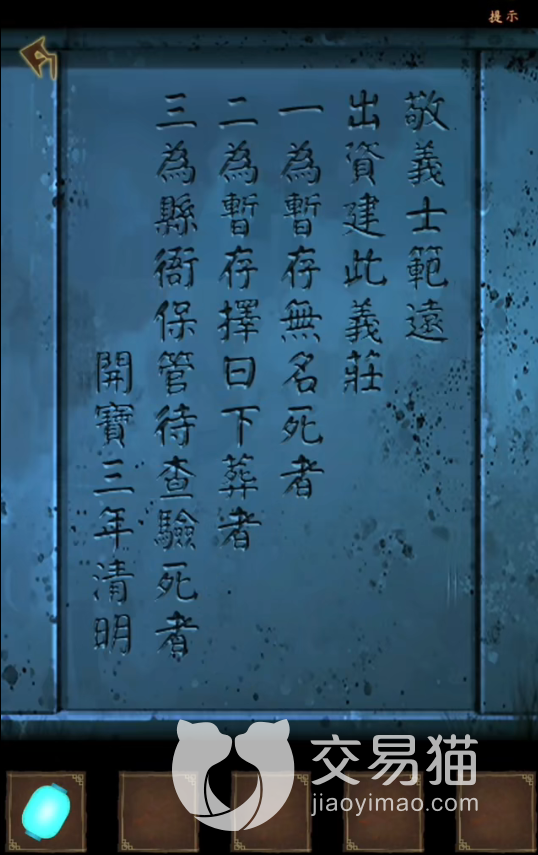 提示
敬義士範遠
出資建此義莊
一為暫存無名死者
二為暫存擇日下葬者
三為縣衙保管待查驗死者
開寶三年清明
交易猫
jiaoyimao.com